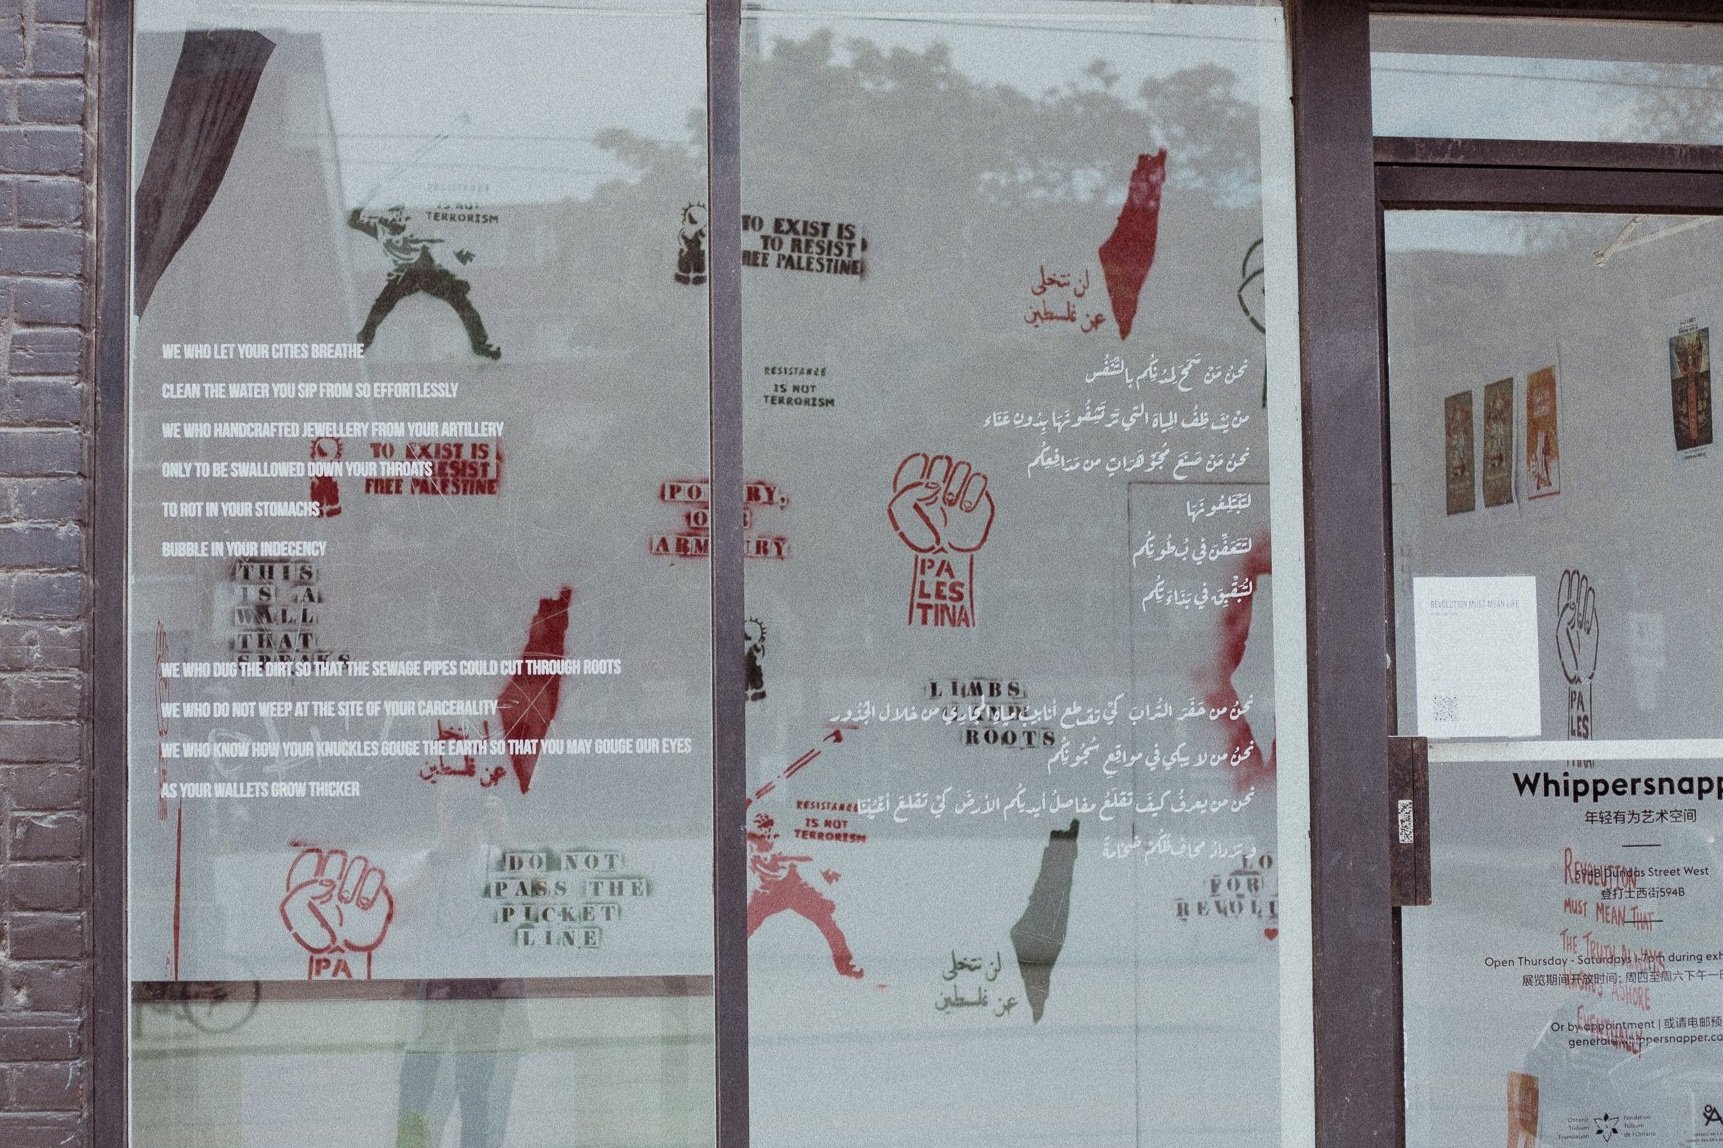 WE WHO LET YOUR CITIES BREATHE
CLEAN THE WATER YOU SIP FROM SO EFFORTLESSLY
WE WHO HANDCRAFTED JEWELLERY FROM YOUR ARTILLERY
ONLY TO BE SWALLOWED DOWN YOUR THROATS
TO ROT IN YOUR STOMACHS
BUBBLE IN YOUR INDECENCY
WE WHO DUG THE DIRT SO THAT THE SEWAGE PIPES COULD CUT THROUGH ROOTS
WE WHO DO NOT WEEP AT THE SITE OF YOUR CARCERALITY
WE WHO KNOW HOW YOUR KNUCKLES GOUGE THE EARTH SO THAT YOU MAY GOUGE OUR EYES
AS YOUR WALLETS GROW THICKER
RESISTANCE
IS NOT
TERRORISM
TO EXIST IS
RESIST
FREE PALESTINE
THIS
IS A
WALL
THAT
SPEAKS
عن فلسطين
PA
DO NOT
PASS THE
PICKET
LINE
TO EXIST IS
TO RESIST
FREE PALESTINE
لن نتخلى
عن فلسطين
RESISTANCE
IS NOT
TERRORISM
ARMOURY
PA
LES
TINA
نحن من
نحن من صنع مجوهرات من مدافعكم
لتبتلعونها
لتتعفن في بطونكم
نحن من حفر التراب كي تقطع أنابيب من خلال الجذور
نحن من لا يبكي في مواقع سجونكم
نحن من يعرف كيف تقلع مفاصل أيديكم الأرض كي تقلع أعيننا
LIMBS
ROOTS
RESISTANCE
IS NOT
TERRORISM
لن نتخلى
عن فلسطين
FOR
REVOLUTION MUST MEAN LIFE
PA
LES
Whippersnapp
年轻有为艺术空间
594B Dundas Street West
登打士西街594B
REVOLUTION
MUST MEAN THAT
THE TRUTH ALWAYS
WASHES ASHORE
EVENTUALLY
Open Thursday - Saturdays 1-7pm during exh
展览期间开放时间: 周四至周六下午一
Or by appointment | 或请电邮预
general@whippersnapper.ca
Ontario
Trillium
Foundation
Fondation
Trillium
de l'Ontario